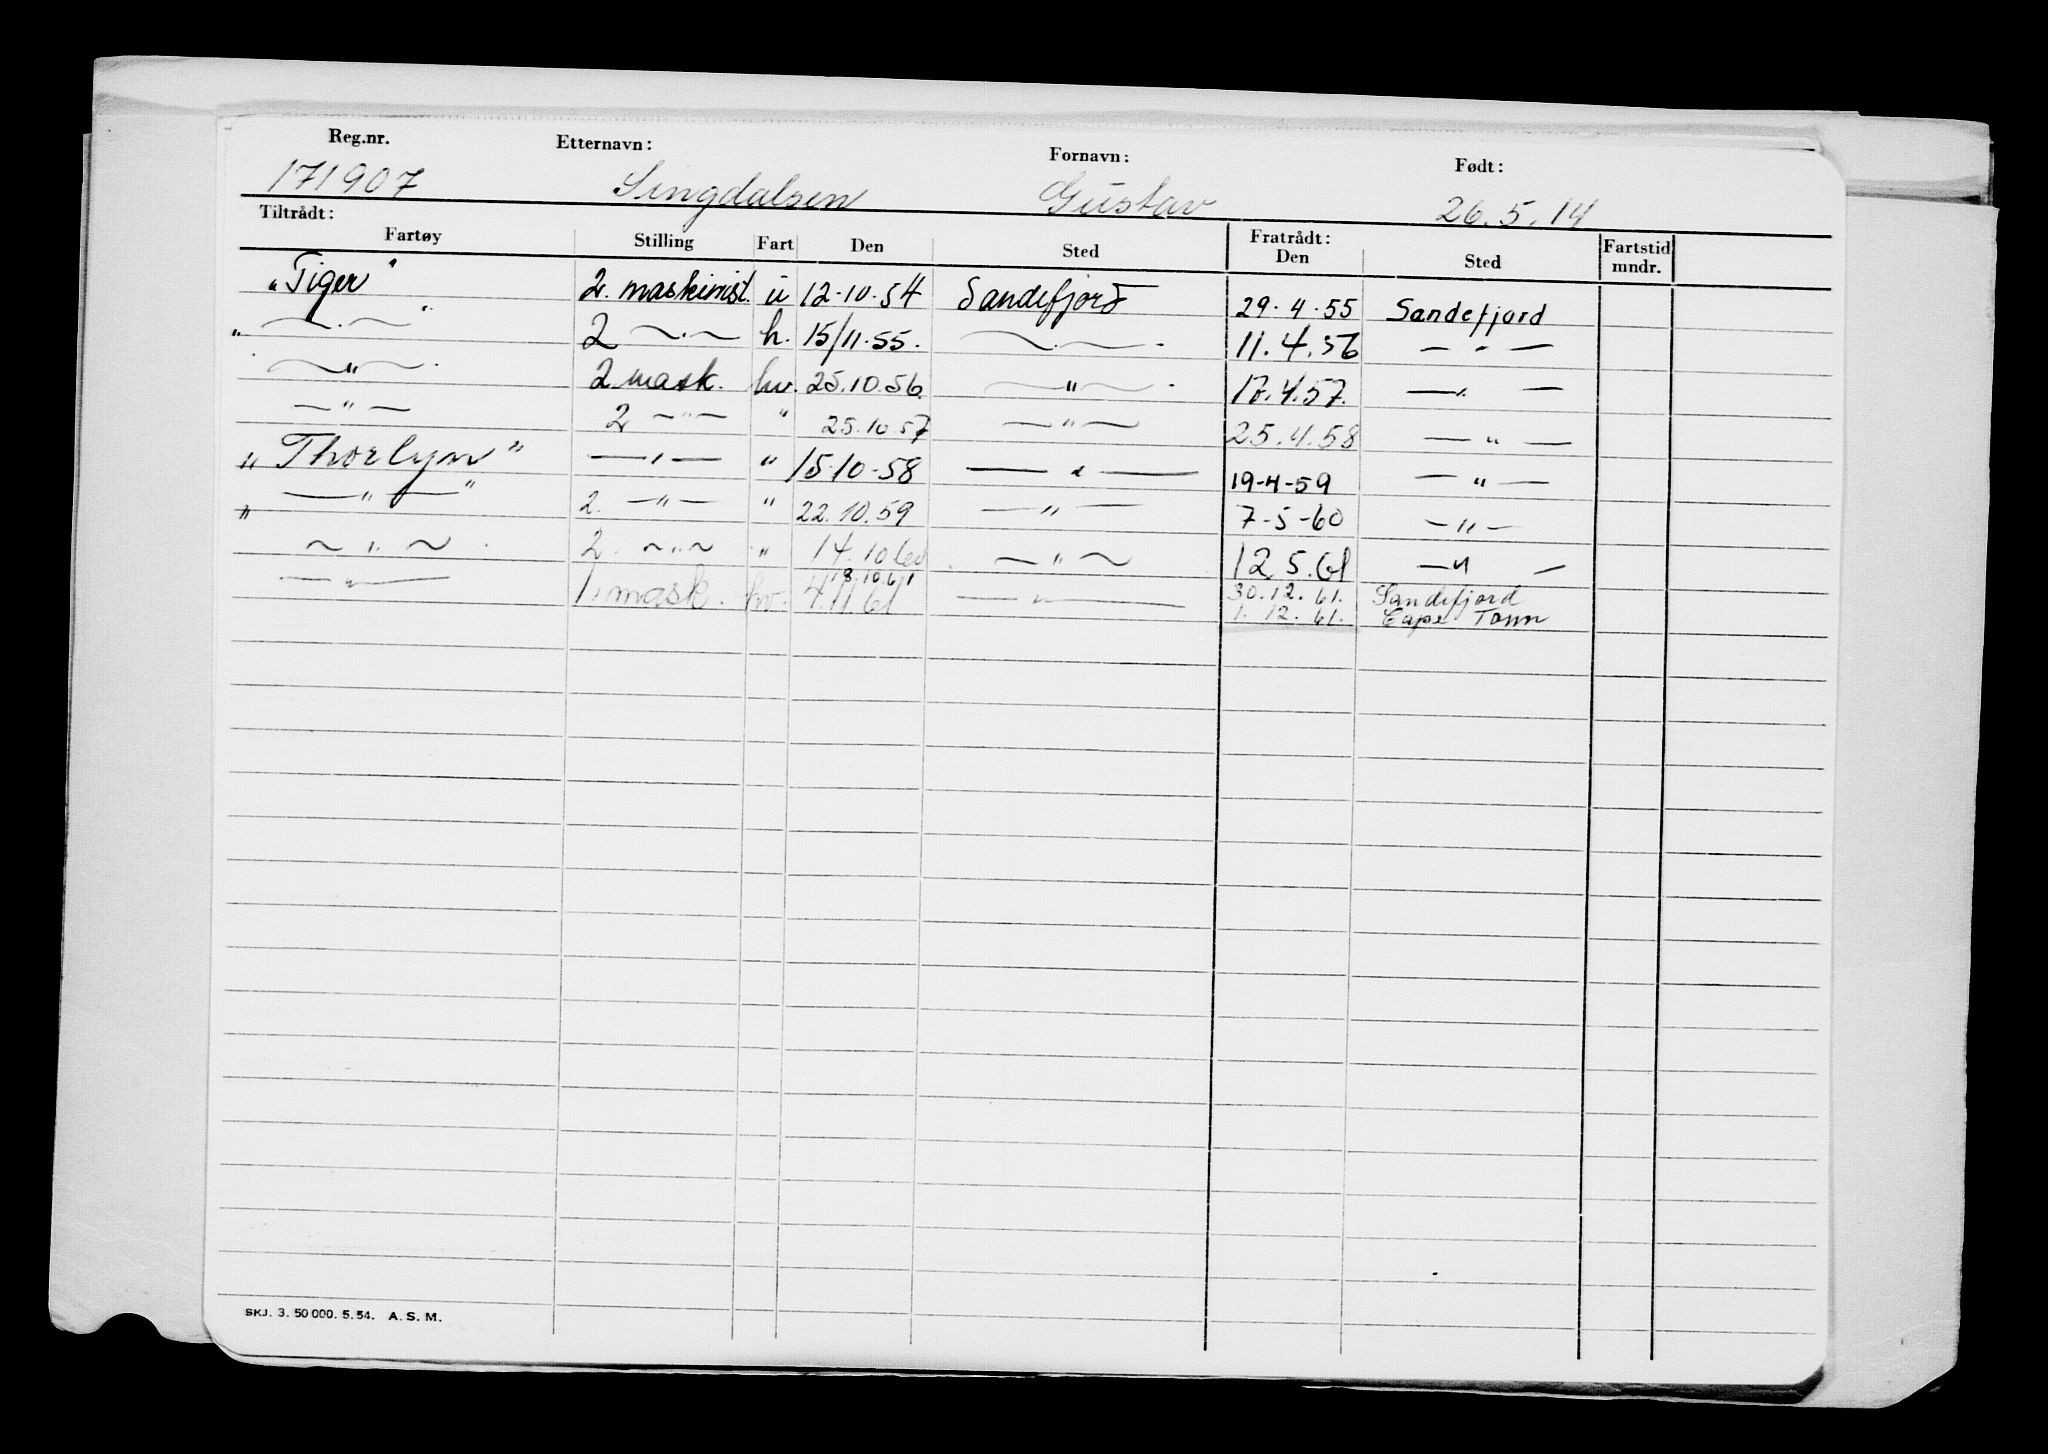 Reg.nr. Etternavn: Fornavn: Født:
171907 Singdalsen Gustav 26.5.14
Tiltrådt: Fratrådt:
Fartøy Stilling Fart Den Sted Den Sted Fartstid mndr.
"Tiger" 2. maskinist. u 12-10-54 Sandefjord 29-4-55 Sandefjord
" —·— " 2 —·— h. 15/11-55. —·— 11.4.56 — " —
— " — 2 mask. hv. 25.10.56. — " — 17.4.57. — " —
— " — 2 — " — " 25.10.57 — " — 25.4.58 — " —
"Thorlyn" — " — " 15-10-58 — " — 19-4-59 — " —
" — " — " 2. — " — " 22.10.59 — " — 7-5-60 — " —
— " — 2. — " — " 14.10.60 — " — 12.5.61 — " —
— " — 1. mask. hv. 4.11.61 — " — 30.12.61. Sandefjord
18.10.61 1.12.61. Cape Town
SKJ. 3. 50 000. 5. 54. A. S. M.